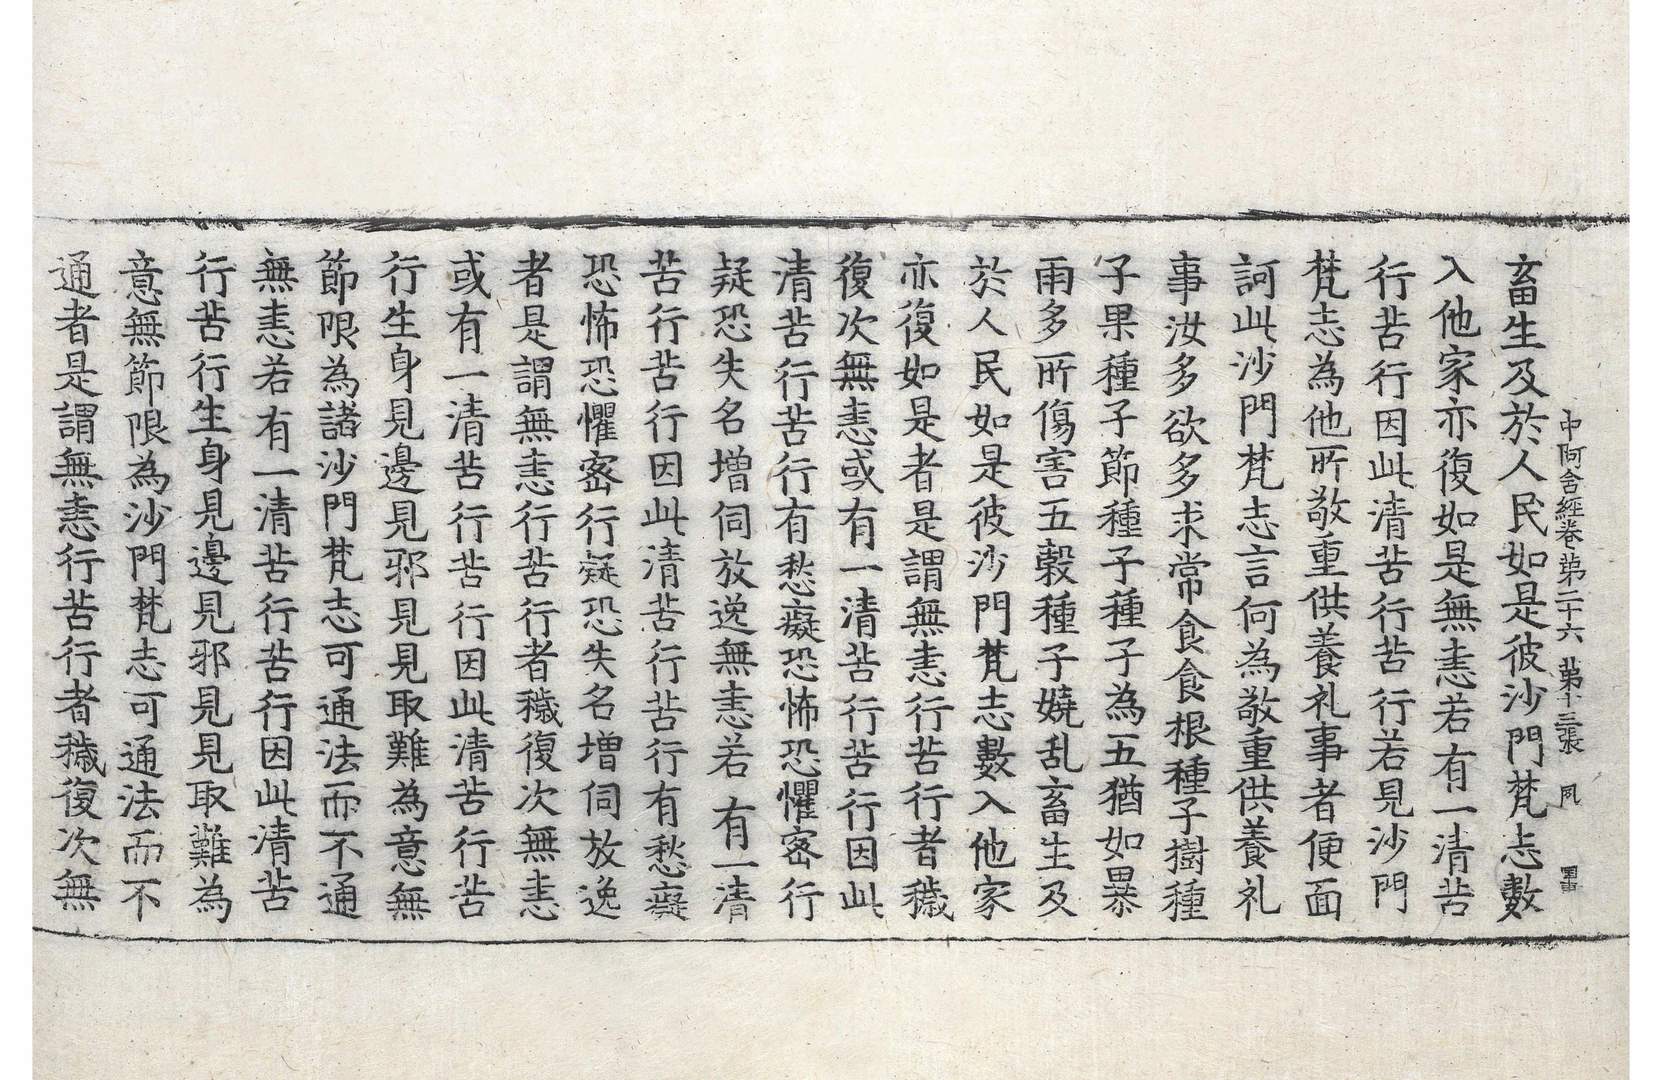 中阿含經卷苐二十六 苐十三張 夙
畜生及於人民如是彼沙門梵志數
入他家亦復如是無恚若有一清苦
行苦行因此清苦行苦行若見沙門
梵志為他所敬重供養礼事者便面
訶此沙門梵志言何為敬重供養礼
事汝多欲多求常食食根種子樹種
子果種子節種子種子為五猶如暴
雨多所傷害五榖種子嬈乱畜生及
於人民如是彼沙門梵志數入他家
亦復如是者是謂無恚行苦行者穢
復次無恚或有一清苦行苦行因此
清苦行苦行有愁癡恐怖恐懼宻行
疑恐失名增伺放逸無恚若有一清
苦行苦行因此清苦行苦行有愁癡
恐怖恐懼宻行疑恐失名增伺放逸
者是謂無恚行苦行者穢復次無恚
或有一清苦行苦行因此清苦行苦
行生身見邊見邪見見取難為意無
節限為諸沙門梵志可通法而不通
無恚若有一清苦行苦行因此清苦
行苦行生身見邊見邪見見取難為
意無節限為沙門梵志可通法而不
通者是謂無恚行苦行者穢復次無